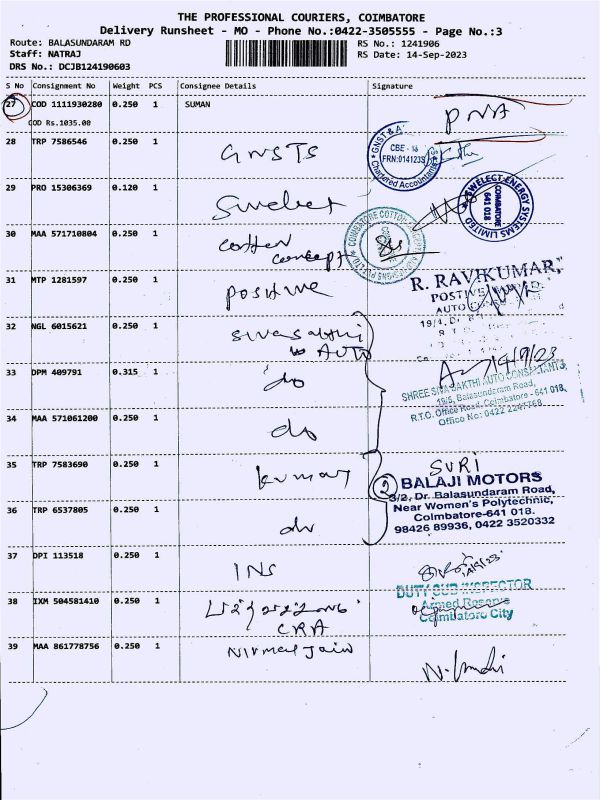 THE PROFESSIONAL COURIERS, COIMBATORE
Delivery Runsheet - MO - Phone No.:0422-3505555 - Page No.:3
Route: BALASUNDARAM RD
RS No.: 1241906
Staff: NATRAJ
RS Date: 14-Sep-2023
DRS No.: DCJB124190603
S No Consignment No Weight PCS Consignee Details Signature
27 COD 1111930280 0.250 1 SUMAN
COD Rs.1035.00
PNA
28 TRP 7586546 0.250 1 GNSTS
GNST & A
CBE - 18
FRN:014123S
Chartered Accountants
29 PRO 15306369 0.120 1 Swelect
SWELECT ENERGY SYSTEMS LIMITED
COIMBATORE
641 018
30 MAA 571710804 0.250 1 cotton concept
COIMBATORE COTTON
31 MTP 1281597 0.250 1 positive
R. RAVIKUMAR,
AUTO
32 NGL 6015621 0.250 1 sivasakthi
AUTO
14/9/23
33 DPM 409791 0.315 1 do
SHREE SIVA SAKTHI AUTO CONSULTANTS
19/5, Balasundaram Road,
R.T.O. Office Road, Coimbatore - 641 018.
Office No: 0422 2247768
34 MAA 571061200 0.250 1 do
35 TRP 7583690 0.250 1 kumar
SURI
2
BALAJI MOTORS
3/2, Dr. Balasundaram Road,
Near Women's Polytechnic,
Coimbatore-641 018.
98426 89936, 0422 3520332
36 TRP 6537805 0.250 1 do
37 DPI 113518 0.250 1 INS
DUTY SUB INSPECTOR
Armed Reserve
Coimbatore City
38 IXM 504581410 0.250 1
CRA
39 MAA 861778756 0.250 1 Nirmal Jain